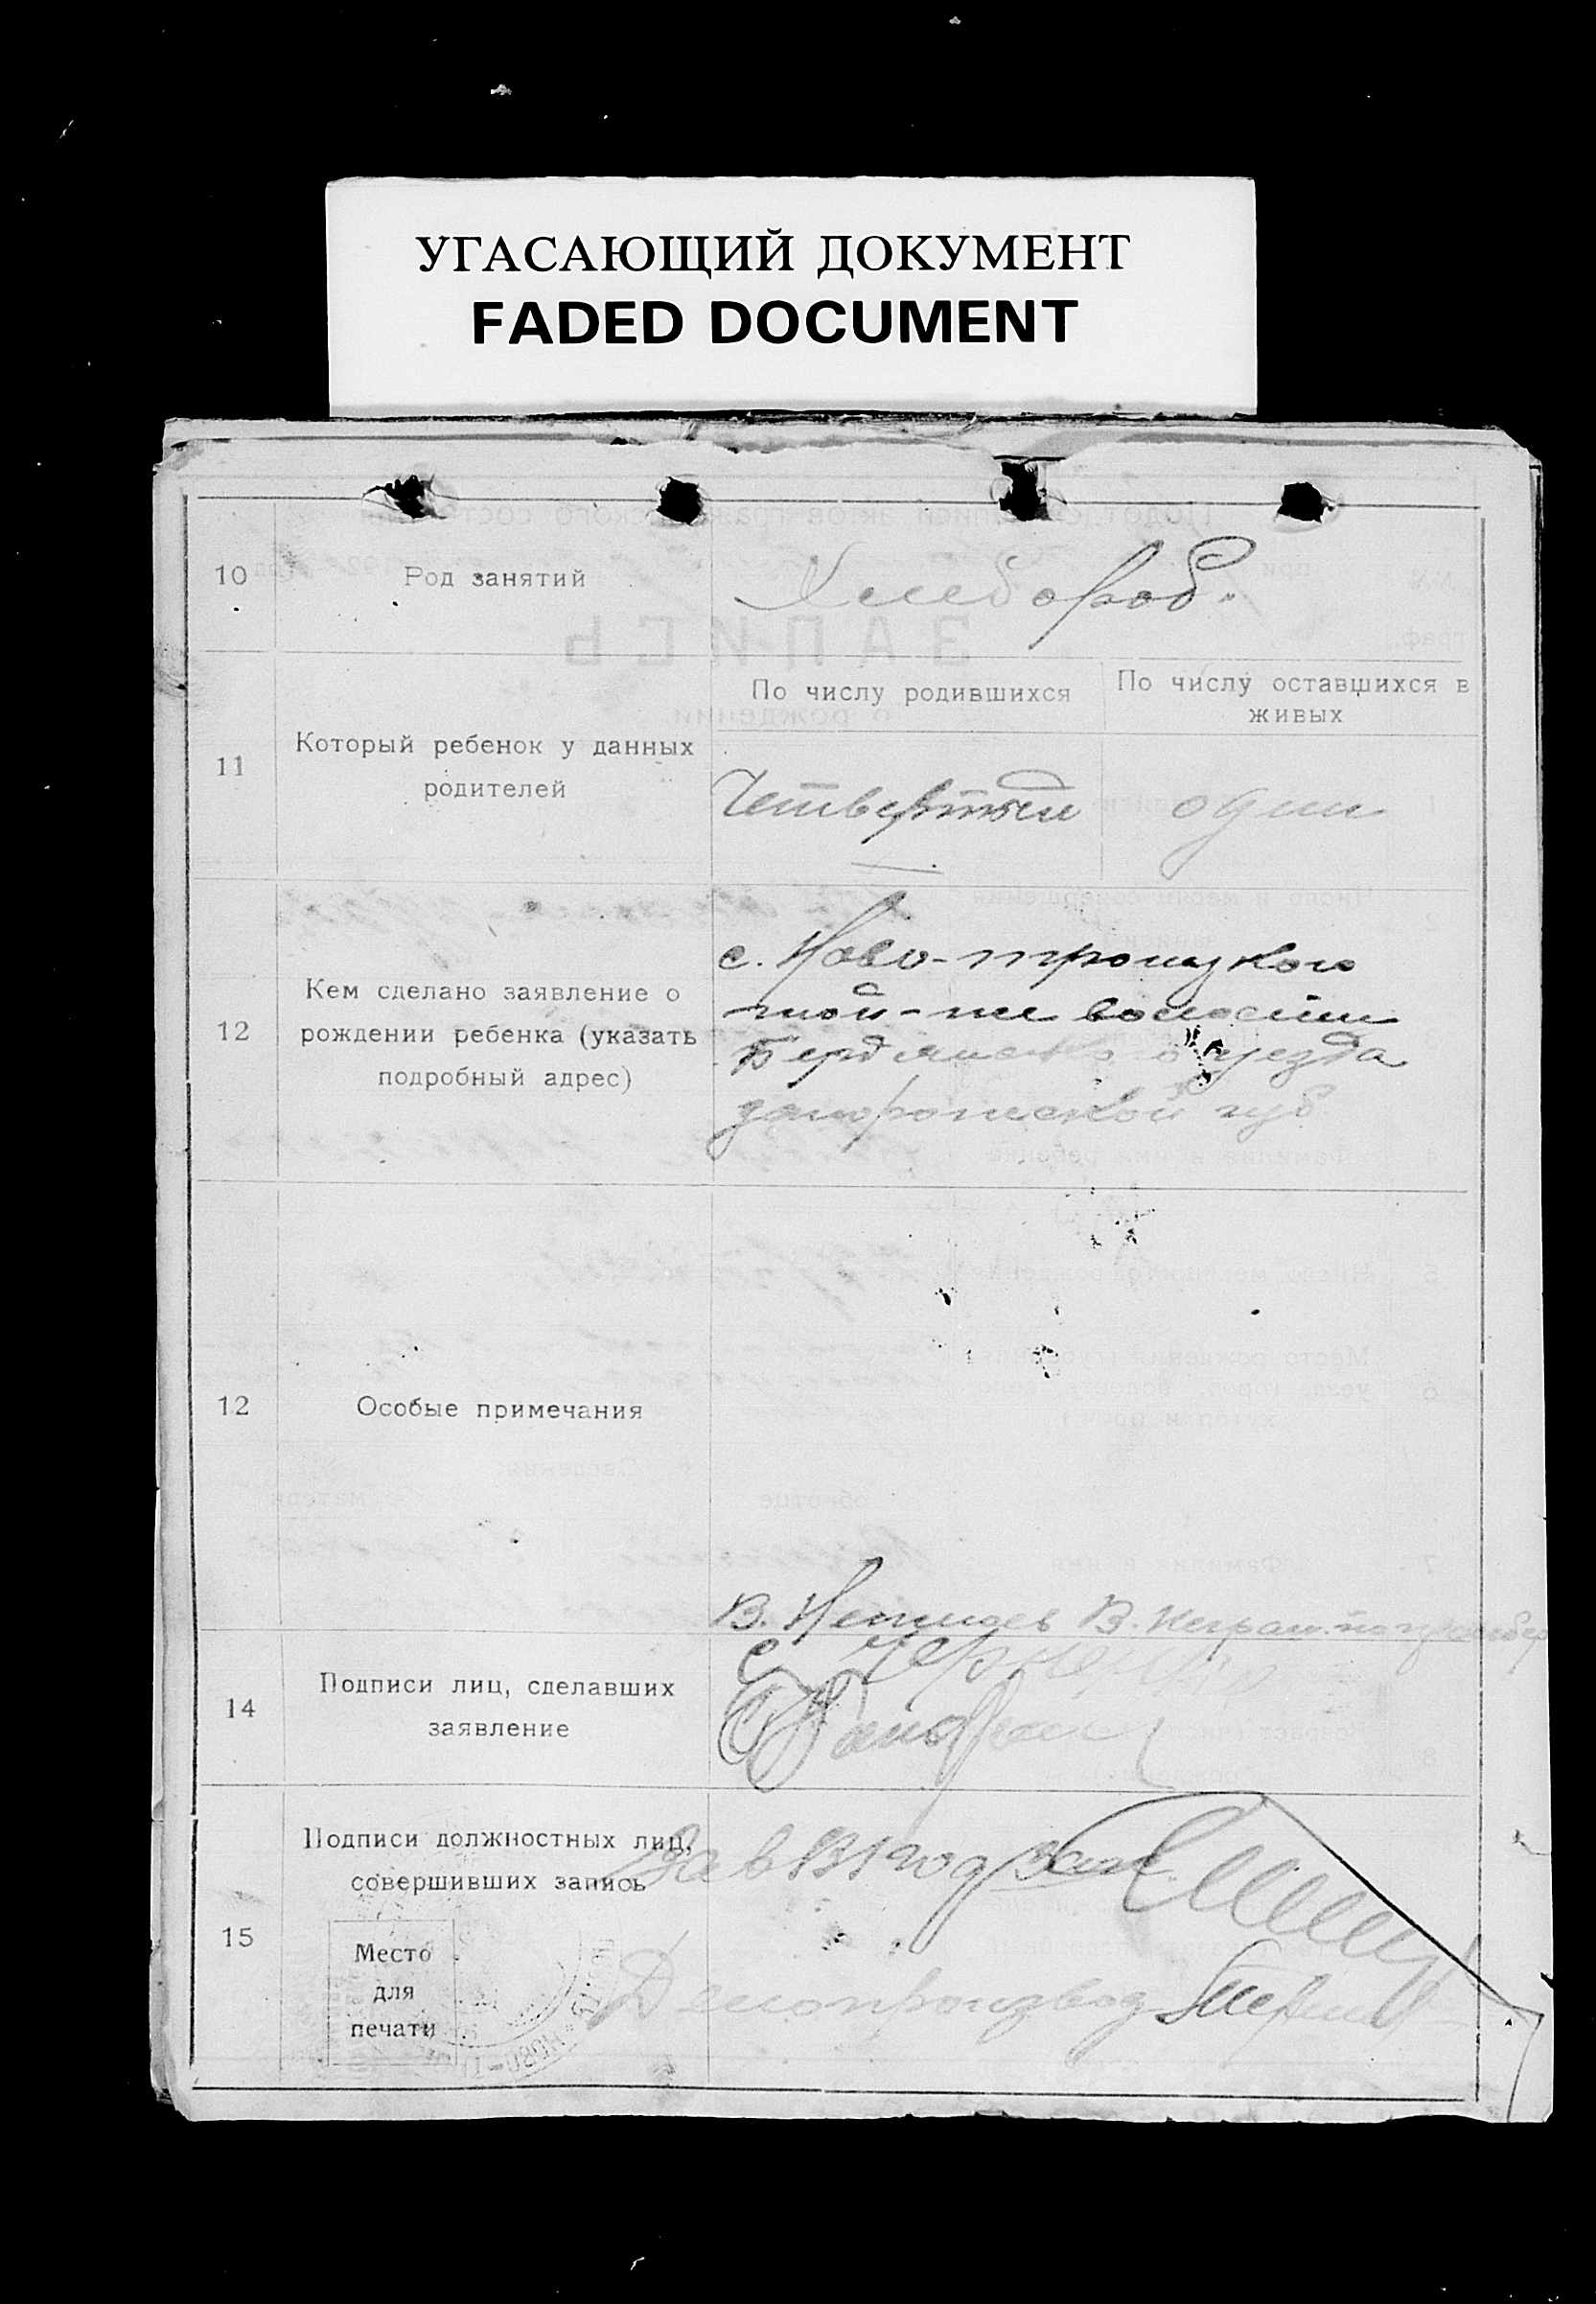 УГАСАЮЩИЙ ДОКУМЕНТ
FADED DOCUMENT
10
Род занятий
Хлебороб.
11
Который ребенок у данных
родителей
По числу родившихся
По числу оставшихся в
живых
Четвертый
один
12
Кем сделано заявление о
рождении ребенка (указать
подробный адрес)
с. Ново-троицкого
той-же волости
Бердянского уезда
запорожской губ
12
Особые примечания
14
Подписи лиц, сделавших
заявление
В. В. Неграм.
15
Подписи должностных лиц,
совершивших запись
Зав
Делопроизвод
Место
для
печати